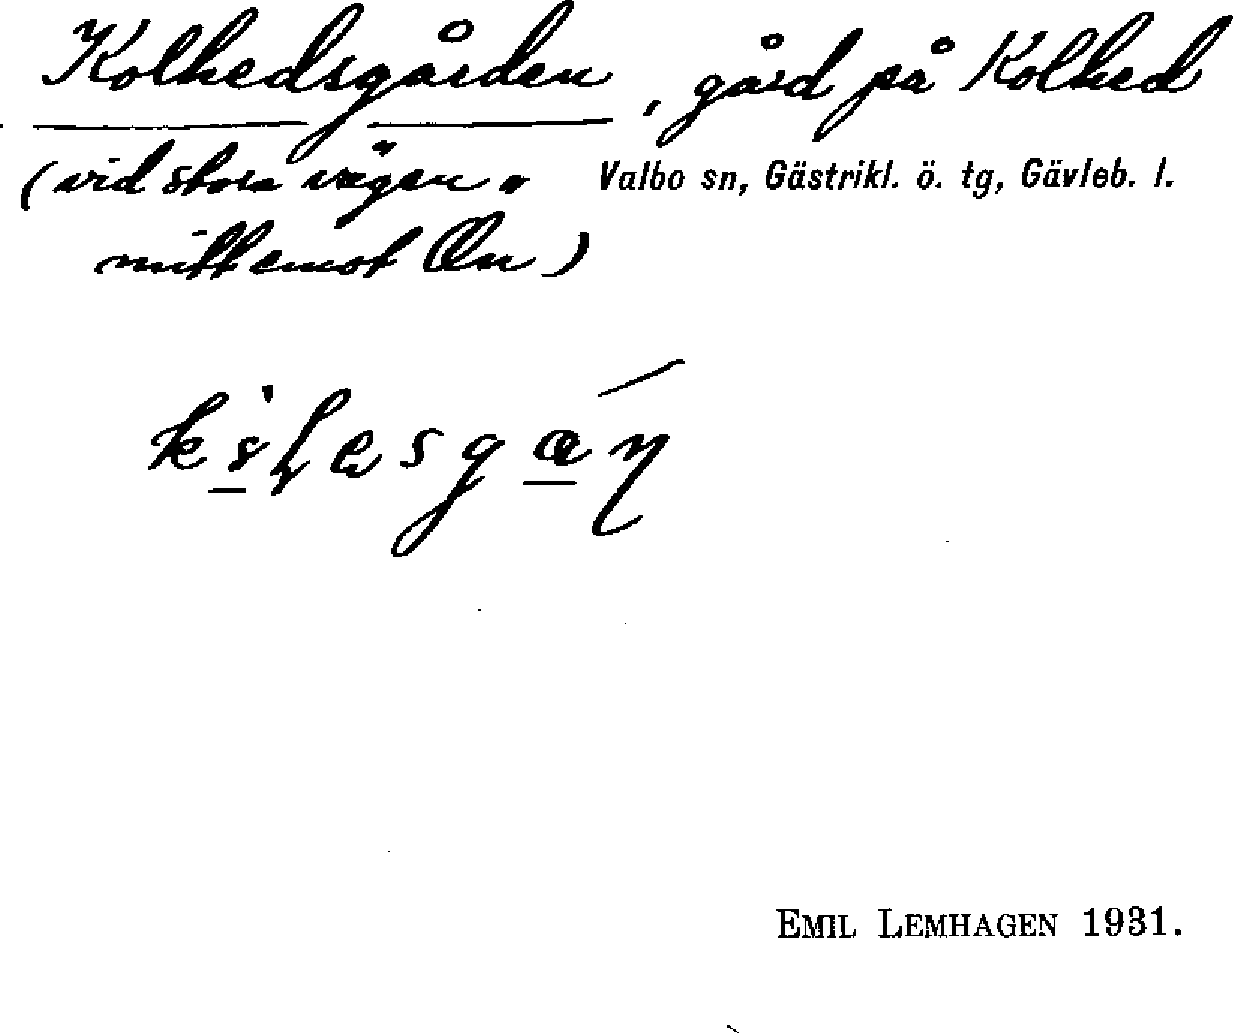 Kolhedsgården, gård på Kolhed
(vid stora vägen
Valbo sn, Gästrikl. ö. tg, Gävleb. l.
mitt emot Ön)
EMIL LEMHAGEN 1931.